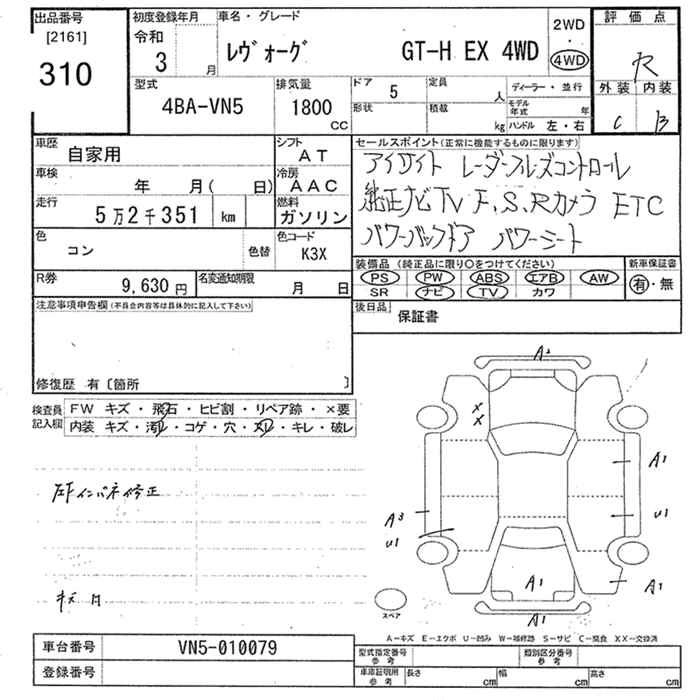 出品番号
[2161]
310
初度登録年月
令和
3 月
車名・グレード
レヴォーグ GT-H EX 4WD
2WD
・
4WD
評価点
R
外装 内装
C B
型式
4BA-VN5
排気量
1800
CC
ドア 5
定員 人
形状
積載 kg
ディーラー・並行
モデル年式 年
ハンドル 左・右
車歴
自家用
シフト
AT
車検
年 月( 日)
冷房
AAC
走行
5万2千351 km
燃料
ガソリン
色
コン
色替
色コード
K3X
R券
9,630円
名変通知期限
月 日
セールスポイント(正常に機能するものに限ります)
アイサイト レーダークルズコントロール
純正ナビ TV F,S,Rカメラ ETC
パワーバックドア パワーシート
装備品(純正品に限り○をつけてください)
PS PW ABS エアB AW
SR ナビ TV カワ
新車保証書
有・無
後日品
保証書
注意事項申告欄(不具合内容等は具体的に記入して下さい)
修復歴 有〔箇所 〕
検査員
記入欄
FW キズ・飛石・ヒビ割・リペア跡・×要
内装 キズ・汚レ・コゲ・穴・スレ・キレ・破レ
左Fインパネ修正
キズ 凹
A2
X
X
A1
A3
U1
U1
A1
A1
A1
スペア
A－キズ E－エクボ U－凹み W－補修跡 S－サビ C－腐食 XX－交換済
車台番号
VN5-010079
登録番号
型式指定番号
参考
類別区分番号
参考
車庫証明用
参考
長さ cm
幅 cm
高さ cm